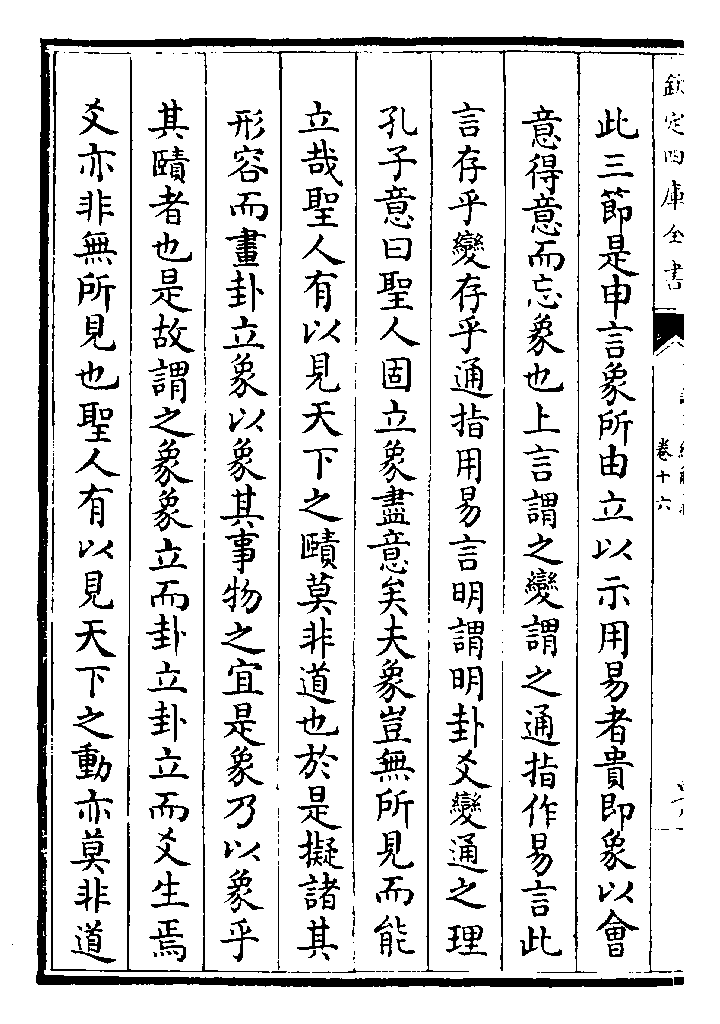 欽定四庫全書
卷十六
此三節是申言象所由立以示用易者貴即象以會
意得意而忘象也上言謂之變謂之通指作易言此
言存乎變存乎通指用易言明謂明卦爻變通之理
孔子意曰聖人固立象盡意矣夫象豈無所見而能
立哉聖人有以見天下之賾莫非道也於是擬諸其
形容而畫卦立象以象其事物之宜是象乃以象乎
其賾者也是故謂之象象立而卦立卦立而爻生焉
爻亦非無所見也聖人有以見天下之動亦莫非道